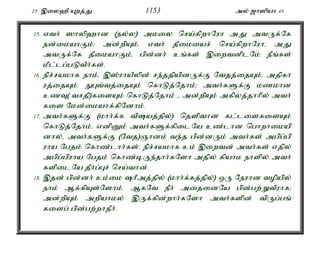 25 இலைஹி யுறத்து 1153 அல் ஜாஸியா 45
15. எவர் ஸாலிஹான (நல்ல) அமலை செய்கிறாரோ அது அவருக்கே
நன்மையாகும்; அன்றியும், எவர் தீமையைச் செய்கிறாரோ, அது
அவருக்கே தீமையாகும், பின்னர் உங்கள் இறைவனிடமே நீங்கள்
மீட்டப்படுவீர்கள்.
16. நிச்சயமாக நாம், இஸ்ராயீலின் சந்ததியினருக்கு வேதத்தையும், அதிகா
ரத்தையும், நுபுவ்வத்தையும் கொடுத்தோம்; அவர்களுக்கு மணமான
உணவு( வசதி)களையும் கொடுத்தோம் , அன்றியும் அகிலத்தாரில் அவர்
களை மேன்மையாக்கினோம்.
17. அவர்களுக்கு (மார்க்க விஷயத்தில்) தெளிவான கட்டளைகளையும்
கொடுத்தோம்; எனினும் அவர்களுக்கிடையே உண்டான பொறாமையி
னால், அவர்களுக்கு (வேத)ஞானம் வந்த பின்னரும் அவர்கள் அபிப்பி
ராய பேதம் கொண்டார்கள்; நிச்சயமாக உம் இறைவன் அவர்கள் எதில்
அபிப்பிராய பேதம் கொண்டிருந்தார்களோ அதில் கியாம நாளில் அவர்
களிடையே தீர்ப்புச் செய்வான்.
18. இதன் பின்னர் உம்மை ஷரீஅத்தில் (மார்க்கத்தில்) ஒரு நேரான வழியில்
நாம் ஆக்கியுள்ளோம். ஆகவே நீர் அதனையே பின்பற்றுவீராக;
அன்றியும் அறியாமல் இருக்கின்றார்களே அவர்களின் விருப்பங்
களைப் பின்பற்றாதீர்.